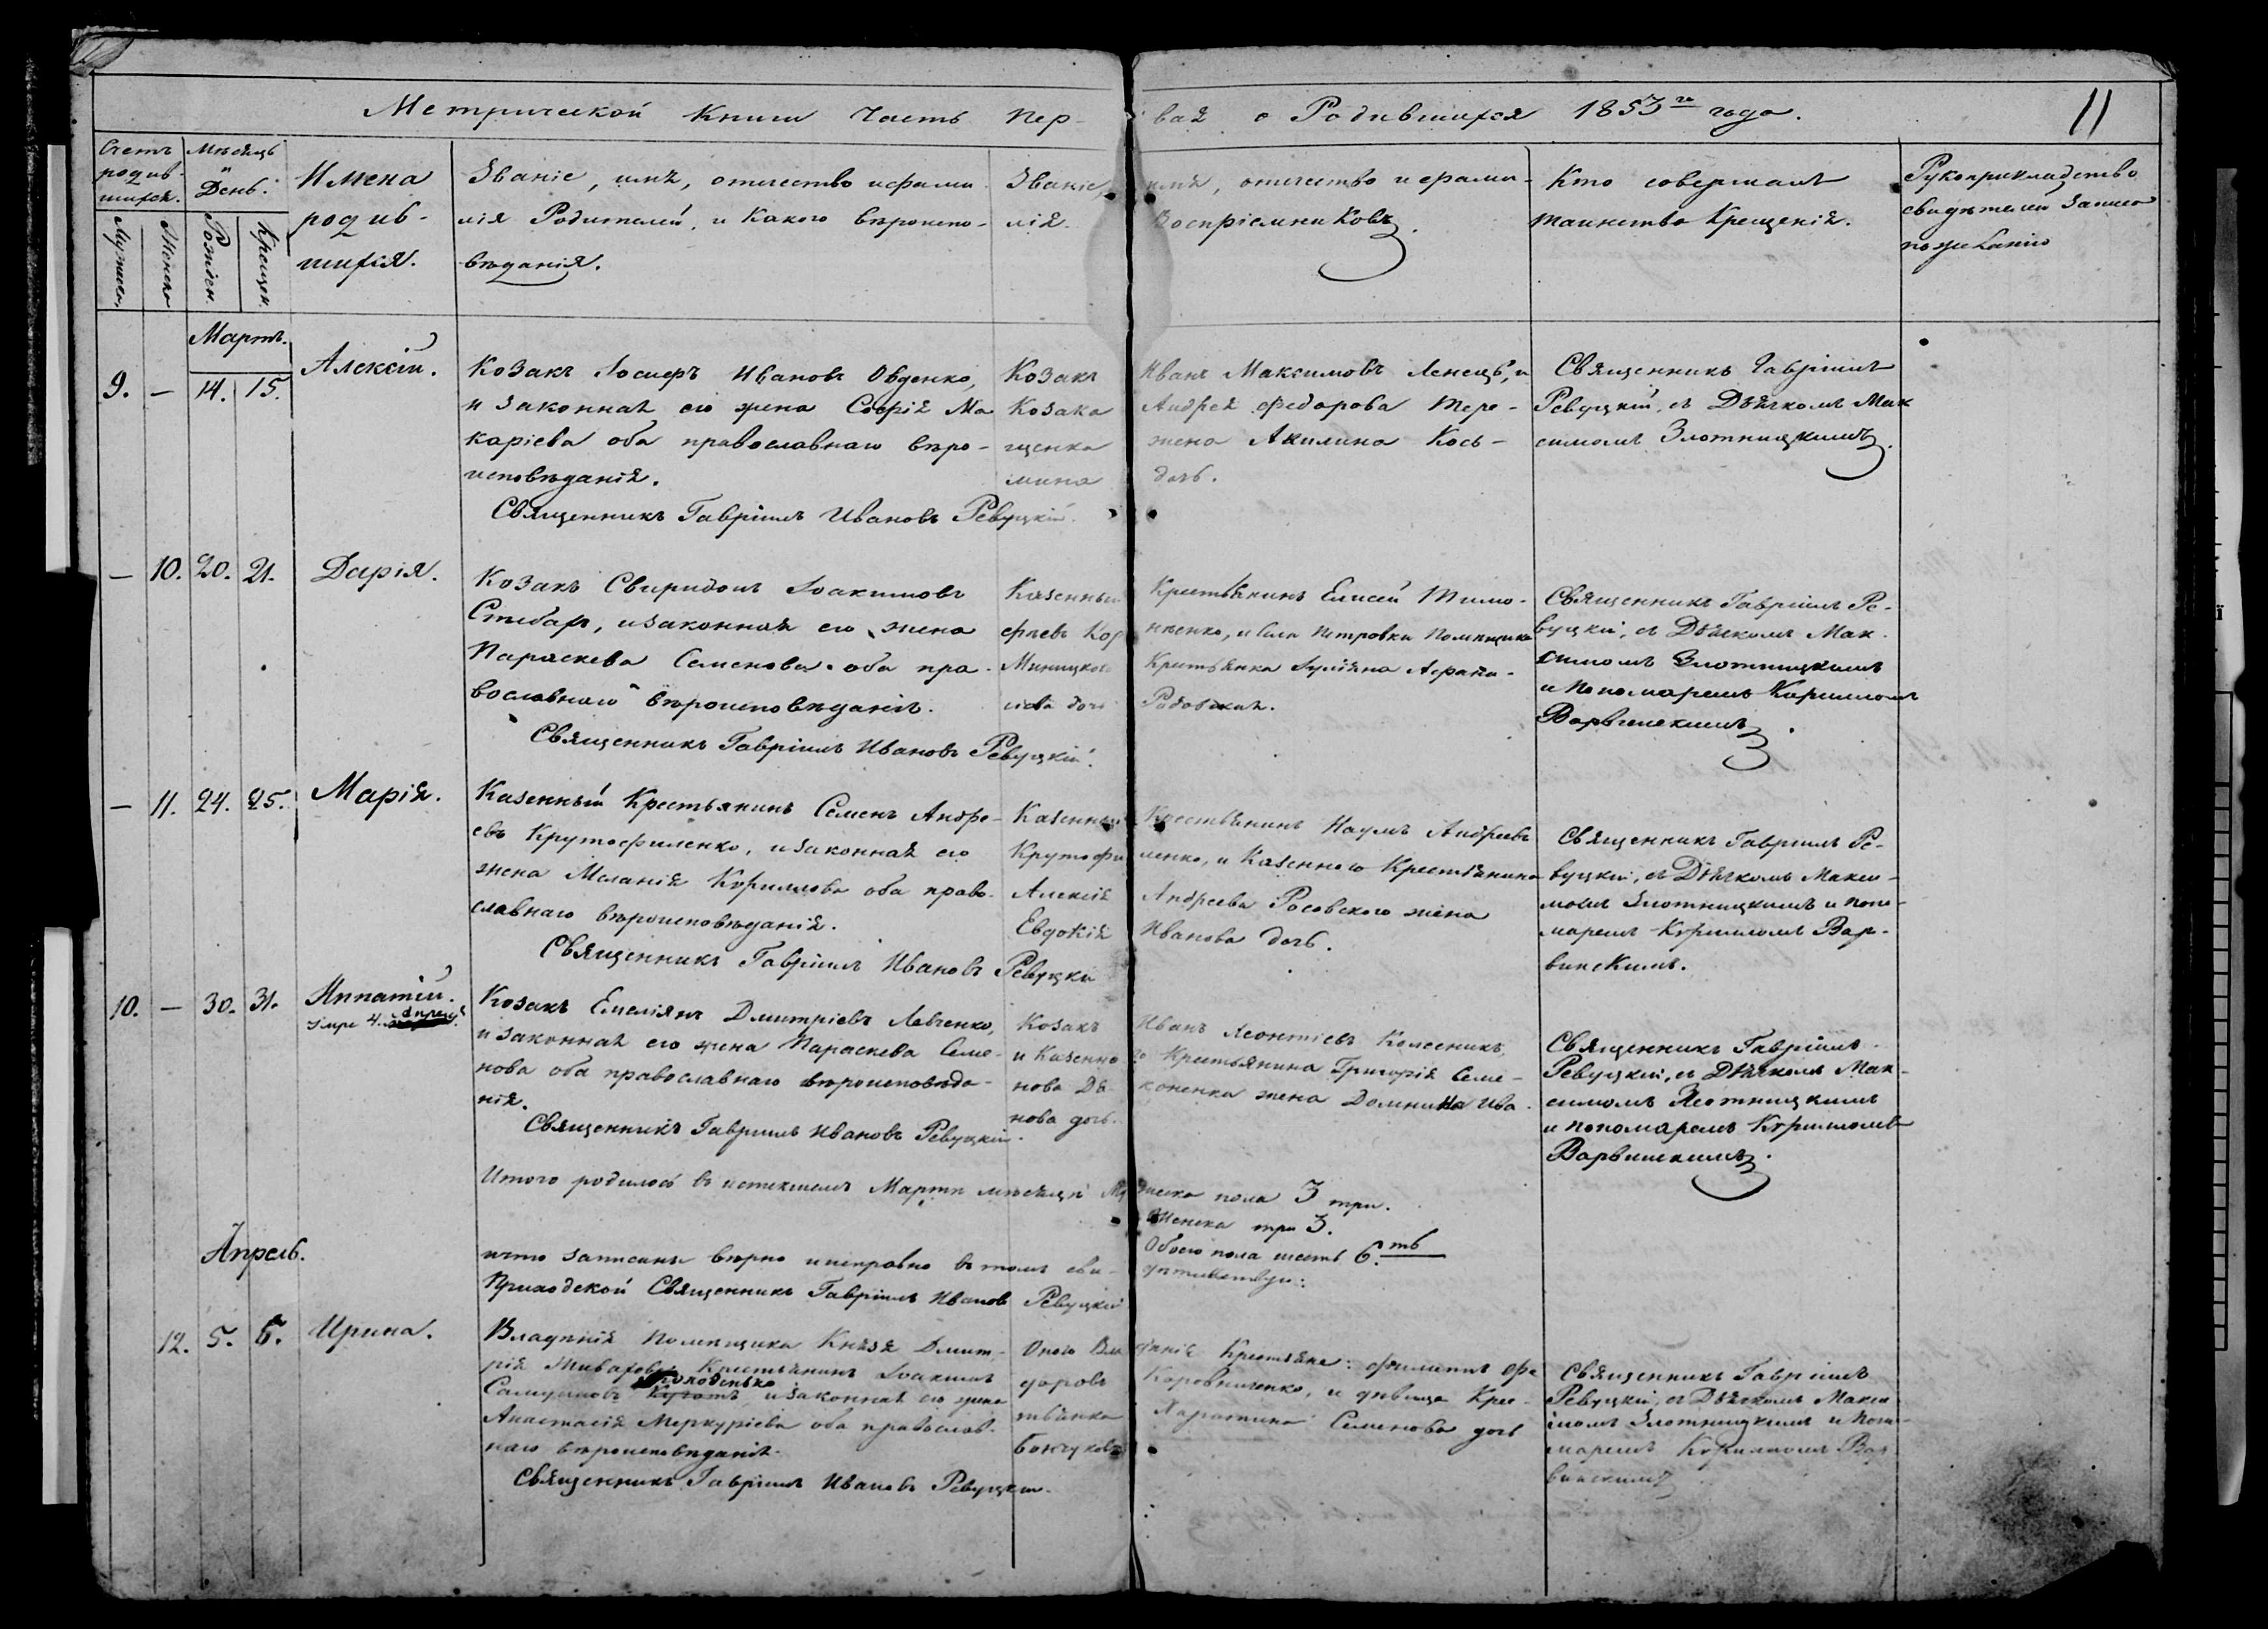 Метрической Книги Часть Пер- вая о Родившихся 1853го года.
11
Счетъ родив- шихся.
Мужеска
Женска
Мѣсяцъ и День.
Рожден.
Крещен.
Имена
родив-
шихся.
Званіе, имя, отечество и фами-
лія Родителей, и Какого вѣроиспо-
вѣданія.
Званіе, имя, отечество и фами-
лія Воспріемниковъ.
Кто совершалъ
таинство Крещенія.
Рукоприкладство
свидѣтелей записи
по желанію
Мартъ.
9. — 14. 15. Алексій.
Козакъ Іосифъ Ивановъ Овденко,
и законная его жена Софія Ма
каріева оба православнаго вѣро-
исповѣданія.
Священникъ Гавріилъ Ивановъ Ревуцкій.
Козакъ Иванъ Максимовъ Ленецъ, и
Козака Андрея Федорова Тере-
щенка жена Акилина Кось-
мина дочь.
Священникъ Гавріилъ
Ревуцкій, съ Дьячкомъ Мак
симомъ Злотницкимъ.
— 10. 20. 21. Дарія.
Козакъ Свиридонъ Іоакимовъ
и законная его жена
Параскева Семенова оба пра-
вославнаго вѣроисповѣданія.
Священникъ Гавріилъ Ивановъ Ревуцкій.
Казенный Крестьянинъ Елисей Тимо-
и села Петровки Помѣщика
Крестьянка Іуліяна
дочь
Священникъ Гавріилъ Ре-
вуцкій, съ Дьячкомъ Мак-
симомъ Злотницкимъ
и пономаремъ Кирилломъ
Варвинскимъ.
— 11. 24. 25. Марія.
Казенный Крестьянинъ Семенъ Андре-
евъ Крутофиленко, и законная его
жена Меланія Кириллова оба право-
славнаго вѣроисповѣданія.
Священникъ Гавріилъ Ивановъ Ревуцкій
Казенный Крестьянинъ Наумъ Андреевъ
Крутофиленко, и Казенного Крестьянина
Алексія Андреева Росовского жена
Евдокія Иванова дочь.
Священникъ Гавріилъ Ре-
вуцкій, съ Дьячкомъ Макси-
момъ Злотницкимъ и поно-
маремъ Кирилломъ Вар-
винскимъ.
10. — 30. 31. Ипатій.
умре 4. Апреля
Козакъ Емеліянъ Дмитріевъ Левченко,
и законная его жена Параскева Семе-
нова оба православнаго вѣроисповѣда-
нія.
Священникъ Гавріилъ Ивановъ Ревуцкій.
Козакъ Иванъ Леонтіевъ Колесникъ,
и Казенного Крестьянина Григорія Семе-
нова жена Домникія Ива-
нова дочь.
Священникъ Гавріилъ
Ревуцкій, съ Дьячкомъ Мак-
симомъ Злотницкимъ
и пономаремъ Кирилломъ
Варвинскимъ.
Итого родилось въ истекшемъ Мартѣ мѣсяцѣ Мужеска пола 3 три.
Женска три 3.
Обоего пола шесть 6.ть
Апрель.
что записаны вѣрно и исправно въ томъ сви- дѣтельствую:
Приходской Священникъ Гавріилъ Ивановъ Ревуцкій
12. 5. 6. Ирина.
Владѣнія Помѣщика Князя Дмит-
рія Крестьянинъ Іоакимъ
Самуиловъ и законная его жена
Анастасія Меркуріева оба православ-
наго вѣроисповѣданія.
Священникъ Гавріилъ Ивановъ Ревуцкій.
Оного Владѣнія Крестьяне: Филиппъ Фе
доровъ Коровниченко, и дѣвица Крес-
тьянка Харитина Семенова дочь
Священникъ Гавріилъ
Ревуцкій, съ Дьячкомъ Макси-
момъ Злотницкимъ и поно-
маремъ Кирилломъ Вар
винскимъ